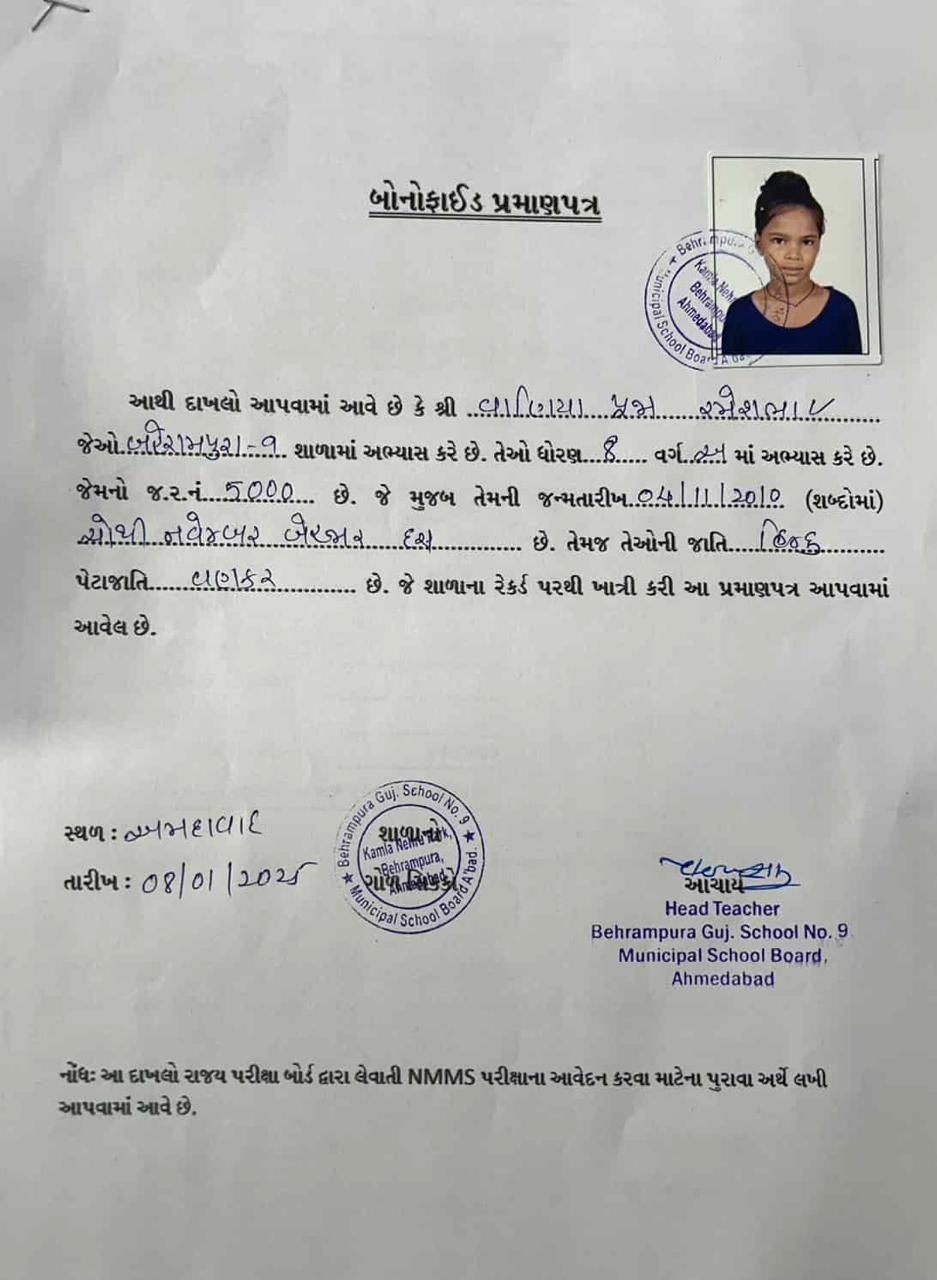 બોનોફાઈડ પ્રમાણપત્ર
Behrampura
Kamla Nehru
Behrampura
Ahmedabad
Municipal School Board A'bad
આથી દાખલો આપવામાં આવે છે કે શ્રી વાણિયા પ્રજ્ઞા રમેશભાઈ
જેઓ બહેરામપુરા-૧ શાળામાં અભ્યાસ કરે છે. તેઓ ધોરણ 8 વર્ગ અ માં અભ્યાસ કરે છે.
જેમનો જ.ર.નં. 5000 છે. જે મુજબ તેમની જન્મતારીખ 04/11/2010 (શબ્દોમાં)
ચોથી નવેમ્બર બેહજાર દસ છે. તેમજ તેઓની જાતિ હિન્દુ
પેટાજાતિ વણકર છે. જે શાળાના રેકર્ડ પરથી ખાત્રી કરી આ પ્રમાણપત્ર આપવામાં
આવેલ છે.
સ્થળ : અમદાવાદ
તારીખ : 08/01/2025
Behrampura Guj. School No. 9
શાળાનો
Kamla Nehru Park,
Behrampura,
Ahmedabad
ગોળ સિક્કો
Municipal School Board A'bad.
આચાર્ય
Head Teacher
Behrampura Guj. School No. 9
Municipal School Board,
Ahmedabad
નોંધઃ આ દાખલો રાજય પરીક્ષા બોર્ડ દ્વારા લેવાતી NMMS પરીક્ષાના આવેદન કરવા માટેના પુરાવા અર્થે લખી
આપવામાં આવે છે.